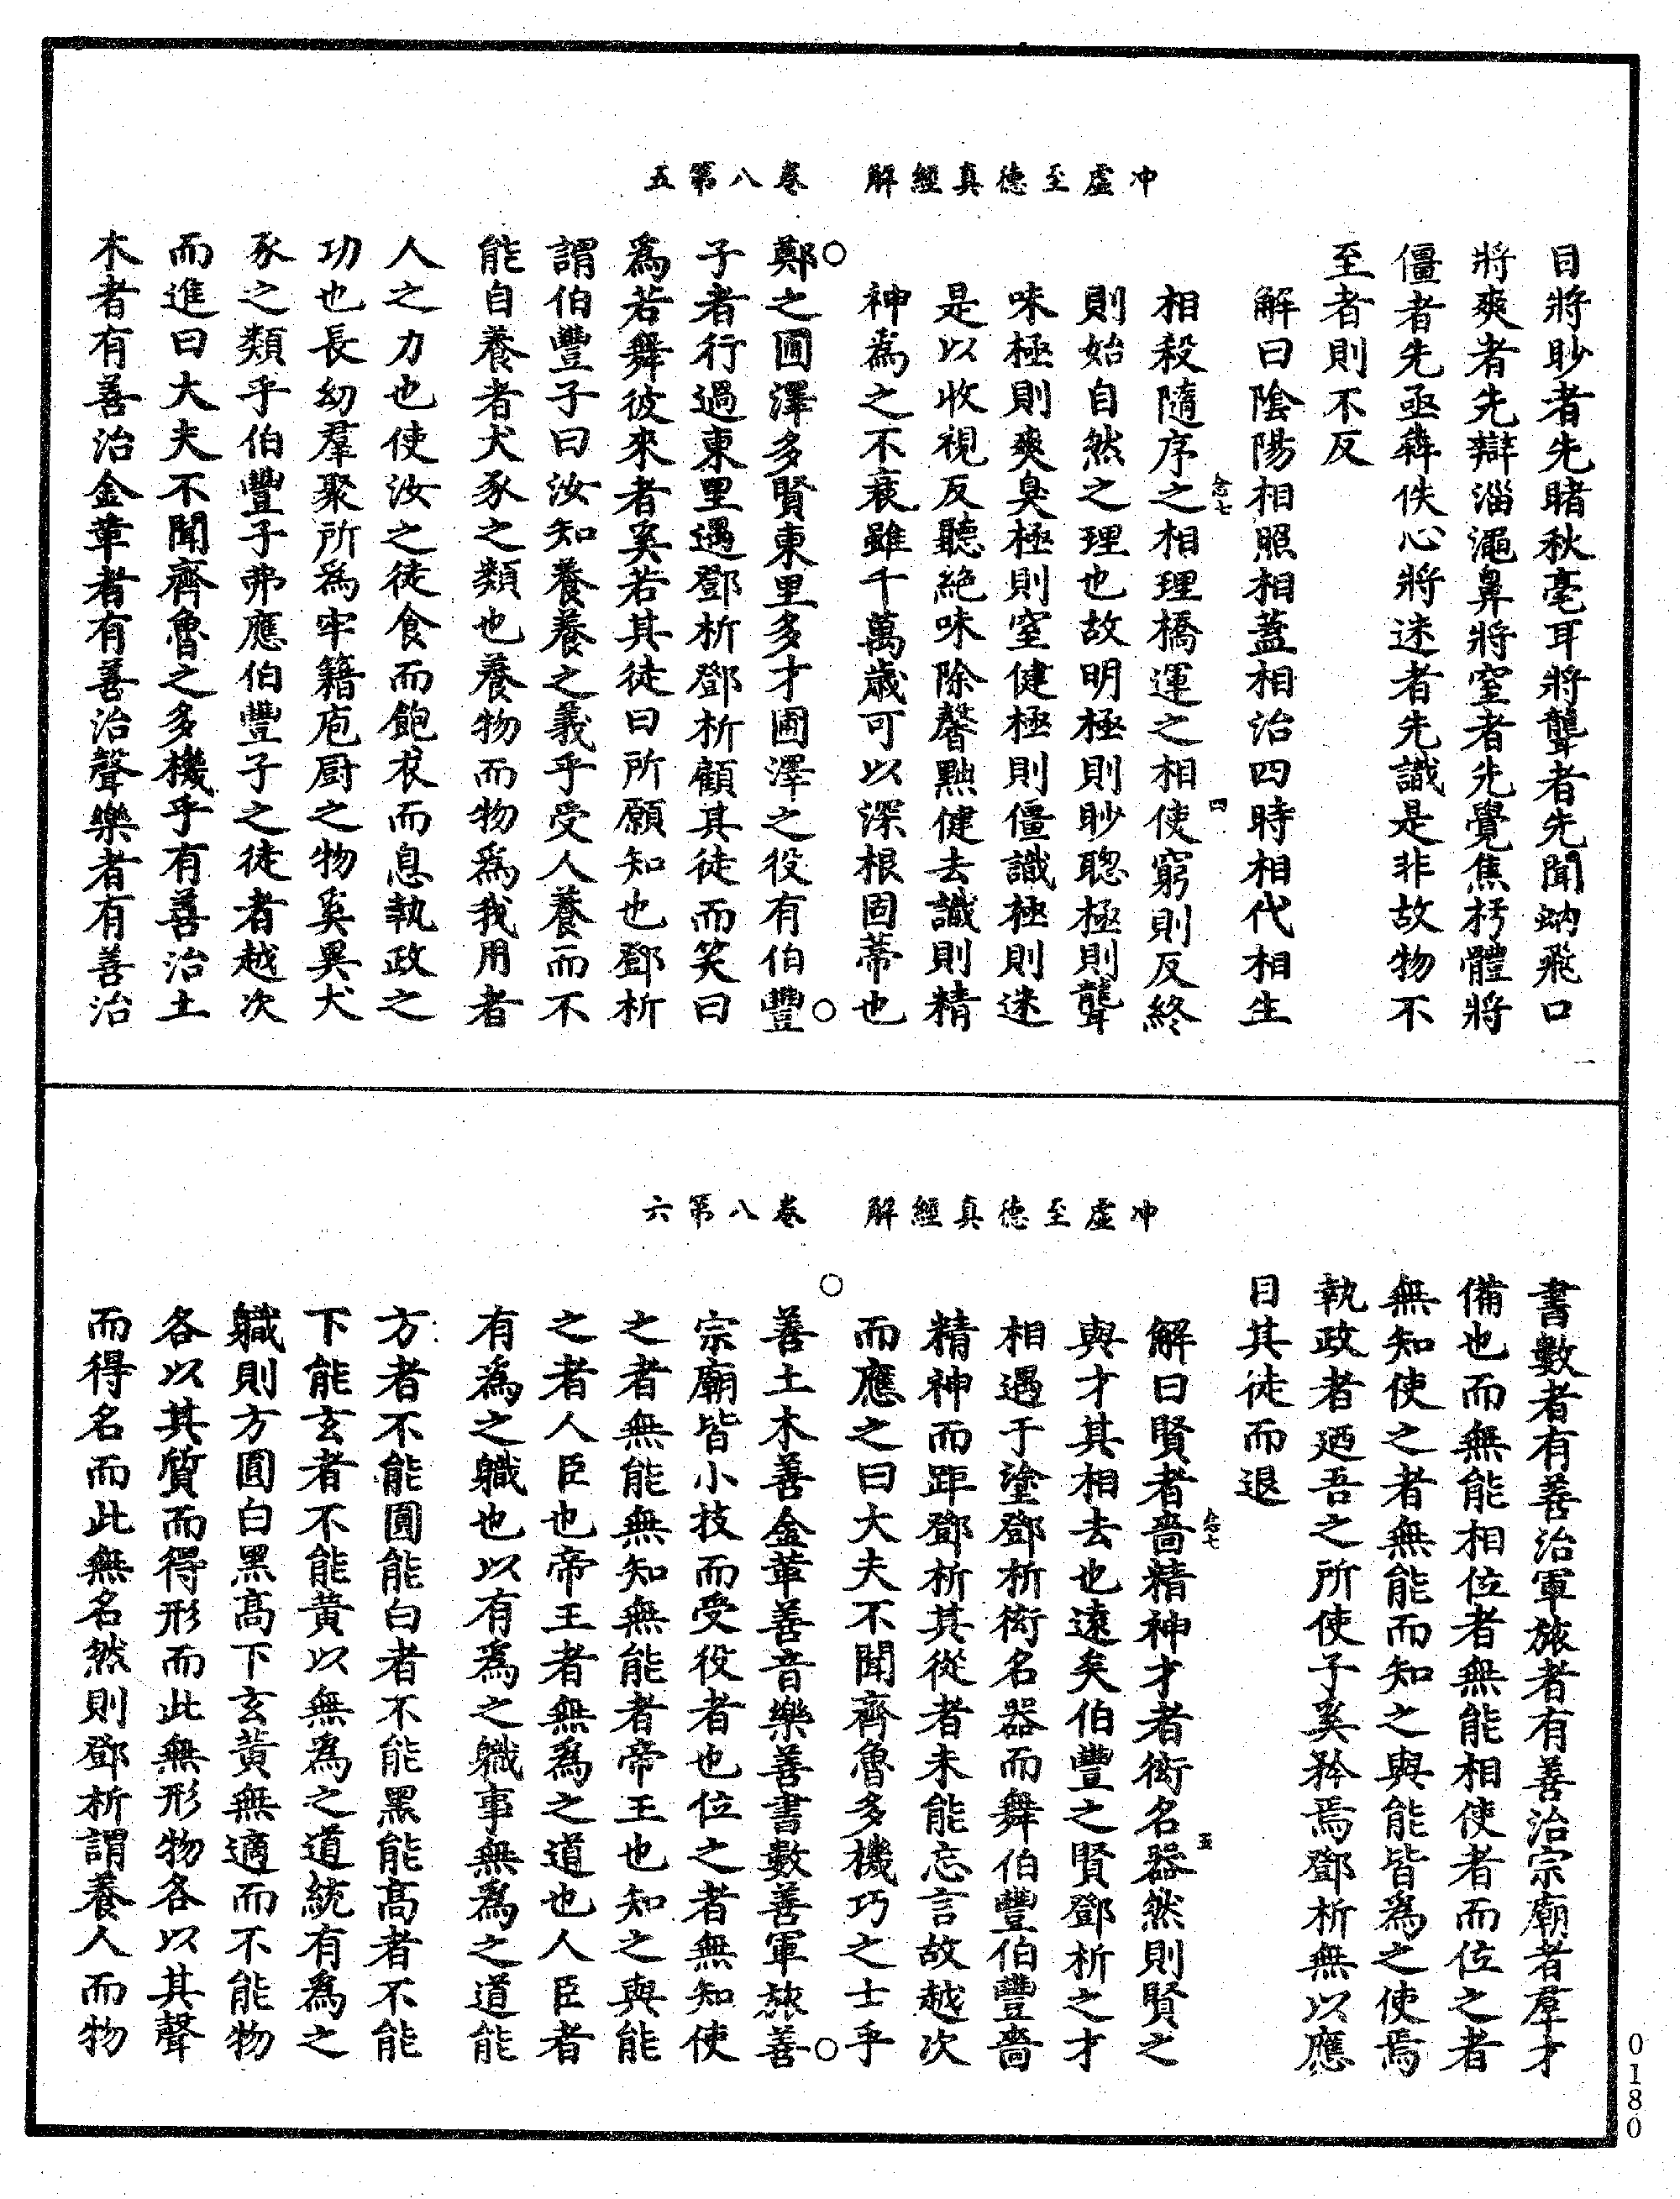 冲虛至德真經解　卷八第五
目將眇者先睹秋毫耳將聾者先聞蚋飛口
將爽者先辯淄澠鼻將窒者先覺焦朽體將
僵者先亟犇佚心將迷者先識是非故物不
至者則不反
解曰陰陽相照相蓋相治四時相代相生
相殺隨序之相理橋運之相使窮則反終
則始自然之理也故明極則眇聰極則聾
味極則爽臭極則窒健極則僵識極則迷
是以收視反聽絶味除馨黜健去識則精
神爲之不衰雖千萬歲可以深根固蒂也
○鄭之圃澤多賢東里多才圃澤之役有伯豐
子者行過東里遇鄧析鄧析顧其徒而笑曰
爲若舞彼來者奚若其徒曰所願知也鄧析
謂伯豐子曰汝知養養之義乎受人養而不
能自養者犬豕之類也養物而物爲我用者
人之力也使汝之徒食而飽衣而息執政之
功也長幼羣聚所爲牢籍庖厨之物奚異犬
豕之類乎伯豐子弗應伯豐子之徒者越次
而進曰大夫不聞齊魯之多機乎有善治土
木者有善治金革者有善治聲樂者有善治
念七
四
冲虛至德真經解　卷八第六
書數者有善治軍旅者有善治宗廟者羣才
備也而無能相位者無能相使者而位之者
無知使之者無能而知之與能皆爲之使焉
執政者廼吾之所使子奚矜焉鄧析無以應
目其徒而退
解曰賢者嗇精神才者衒名器然則賢之
與才其相去也遠矣伯豐之賢鄧析之才
相遇于塗鄧析衒名器而舞伯豐伯豐嗇
精神而距鄧析其從者未能忘言故越次
而應之曰大夫不聞齊魯多機巧之士乎
○善土木善金革善音樂善書數善軍旅善
宗廟皆小技而受役者也位之者無知使
之者無能無知無能者帝王也知之與能
之者人臣也帝王者無爲之道也人臣者
有爲之職也以有爲之職事無爲之道能
方者不能圓能白者不能黑能高者不能
下能玄者不能黄以無爲之道統有爲之
職則方圓白黑高下玄黄無適而不能物
各以其質而得形而此無形物各以其聲
而得名而此無名然則鄧析謂養人而物
念七
五
0180